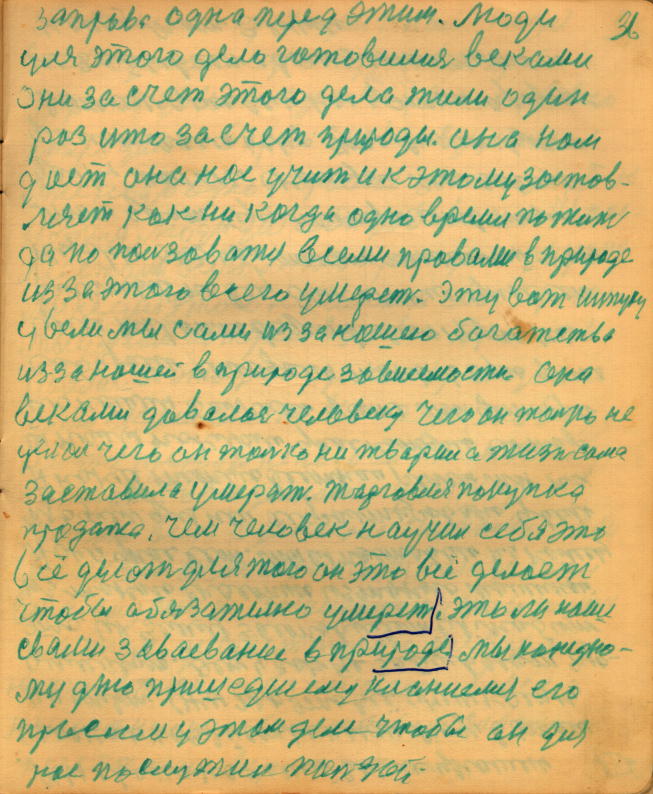 заправе одна перед этим. Люди 36
для этого дело готовились веками
Они за счет этого дела жили один
раз и то за счет природы. она нам
дает она нас учит и к этому застов-
ляет как ни когда одно время пожит
да по ползоватя всеми правами в природе
из за этого всего умерет. Эту вот штуку
увели мы сами из за нашего богатства
из за нашей в природе зависемости. Она
веками довалас человеку чего он толко не
делал чего он толко ни тварил а жизн сама
заставила умерат. Торговля покупка
продажа. чем человек научил себя это
всё делат для того он это всё делает
чтобы обязателно умерет. Это ли наше
свами заваевание в природе мы каждо-
му дню пришедшему кланиемся его
просим у этом деле чтобы он для
нас послужил